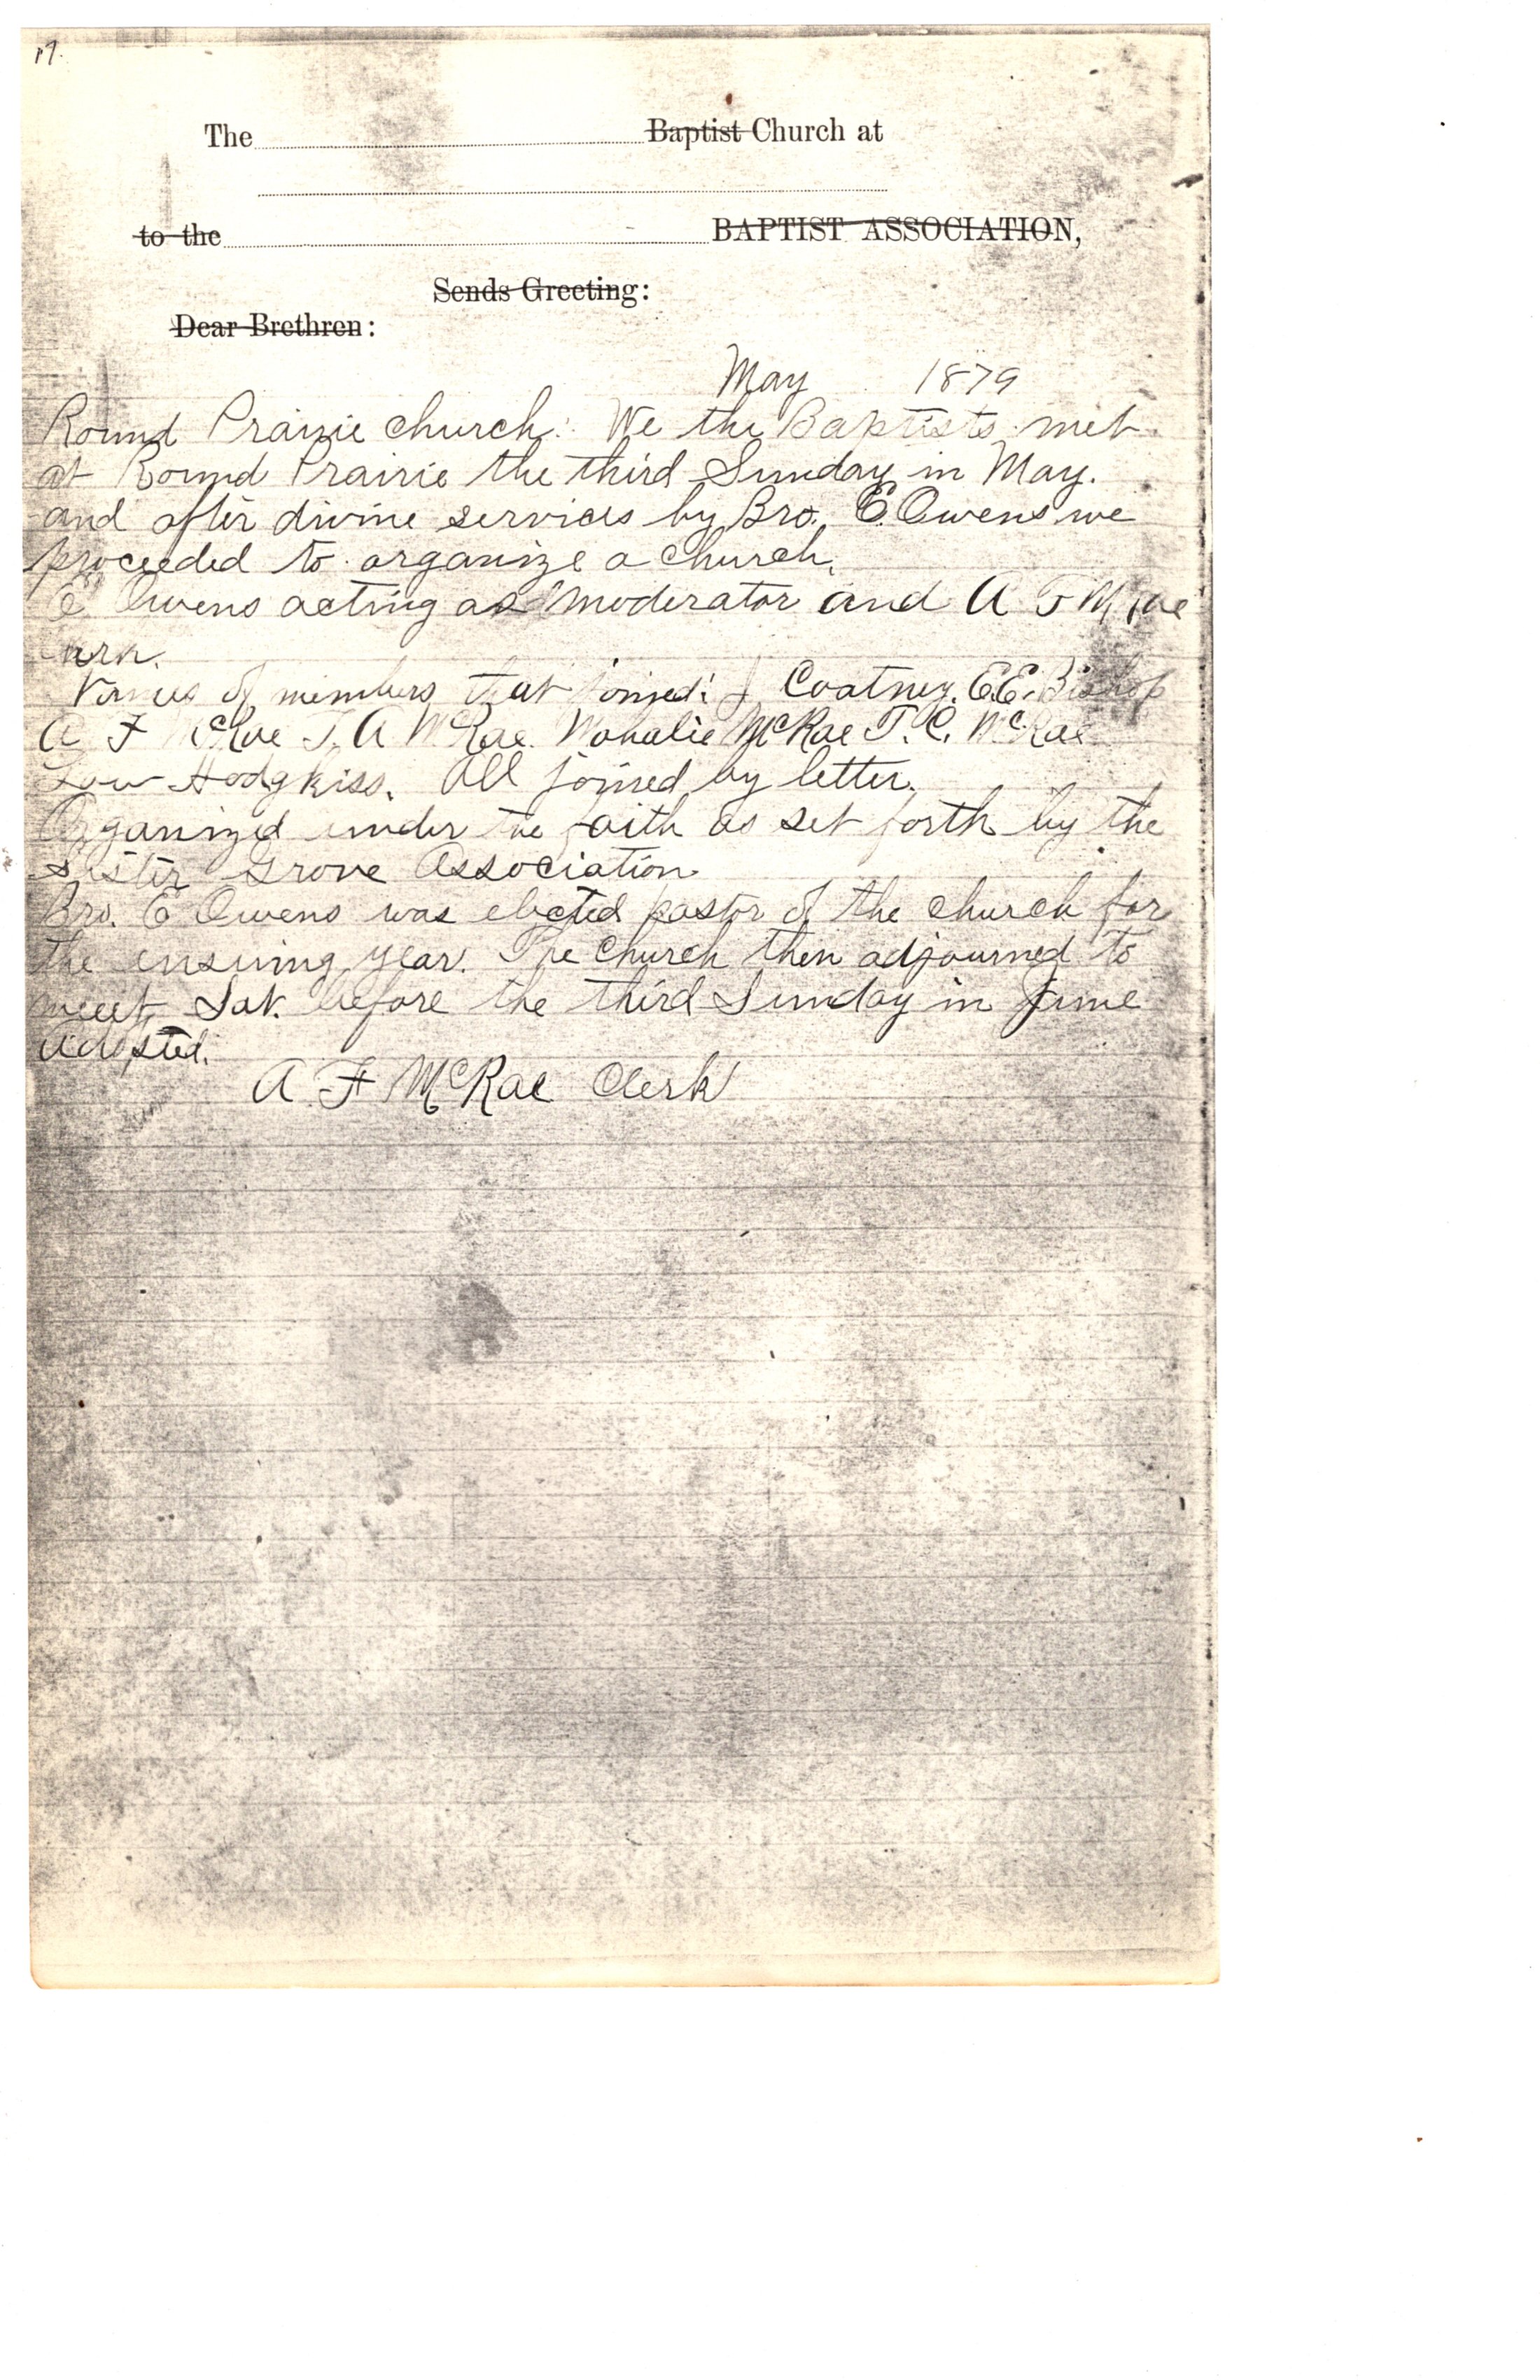 17.
The Baptist Church at
to the BAPTIST ASSOCIATION,
Sends Greeting:
Dear Brethren:
May 1879
Round Prairie church: We the Baptists met
at Round Prairie the third Sunday in May.
and after divine services by Bro. E. Owens we
proceeded to organize a church.
E Owens acting as moderator and A F McRae
Names of members that joined: J Coatney. E.E. Bishop
A F McRae J. A McRae. McRae T. C. McRae
Lou Hodgkiss. All joined by letter.
Organized under the faith as set forth by the
sister Grove Association.
Bro. E Owens was elected pastor of the church for
the ensuing year. The church then adjourned to
meet Sat. before the third Sunday in June
Adopted.
A F McRae Clerk